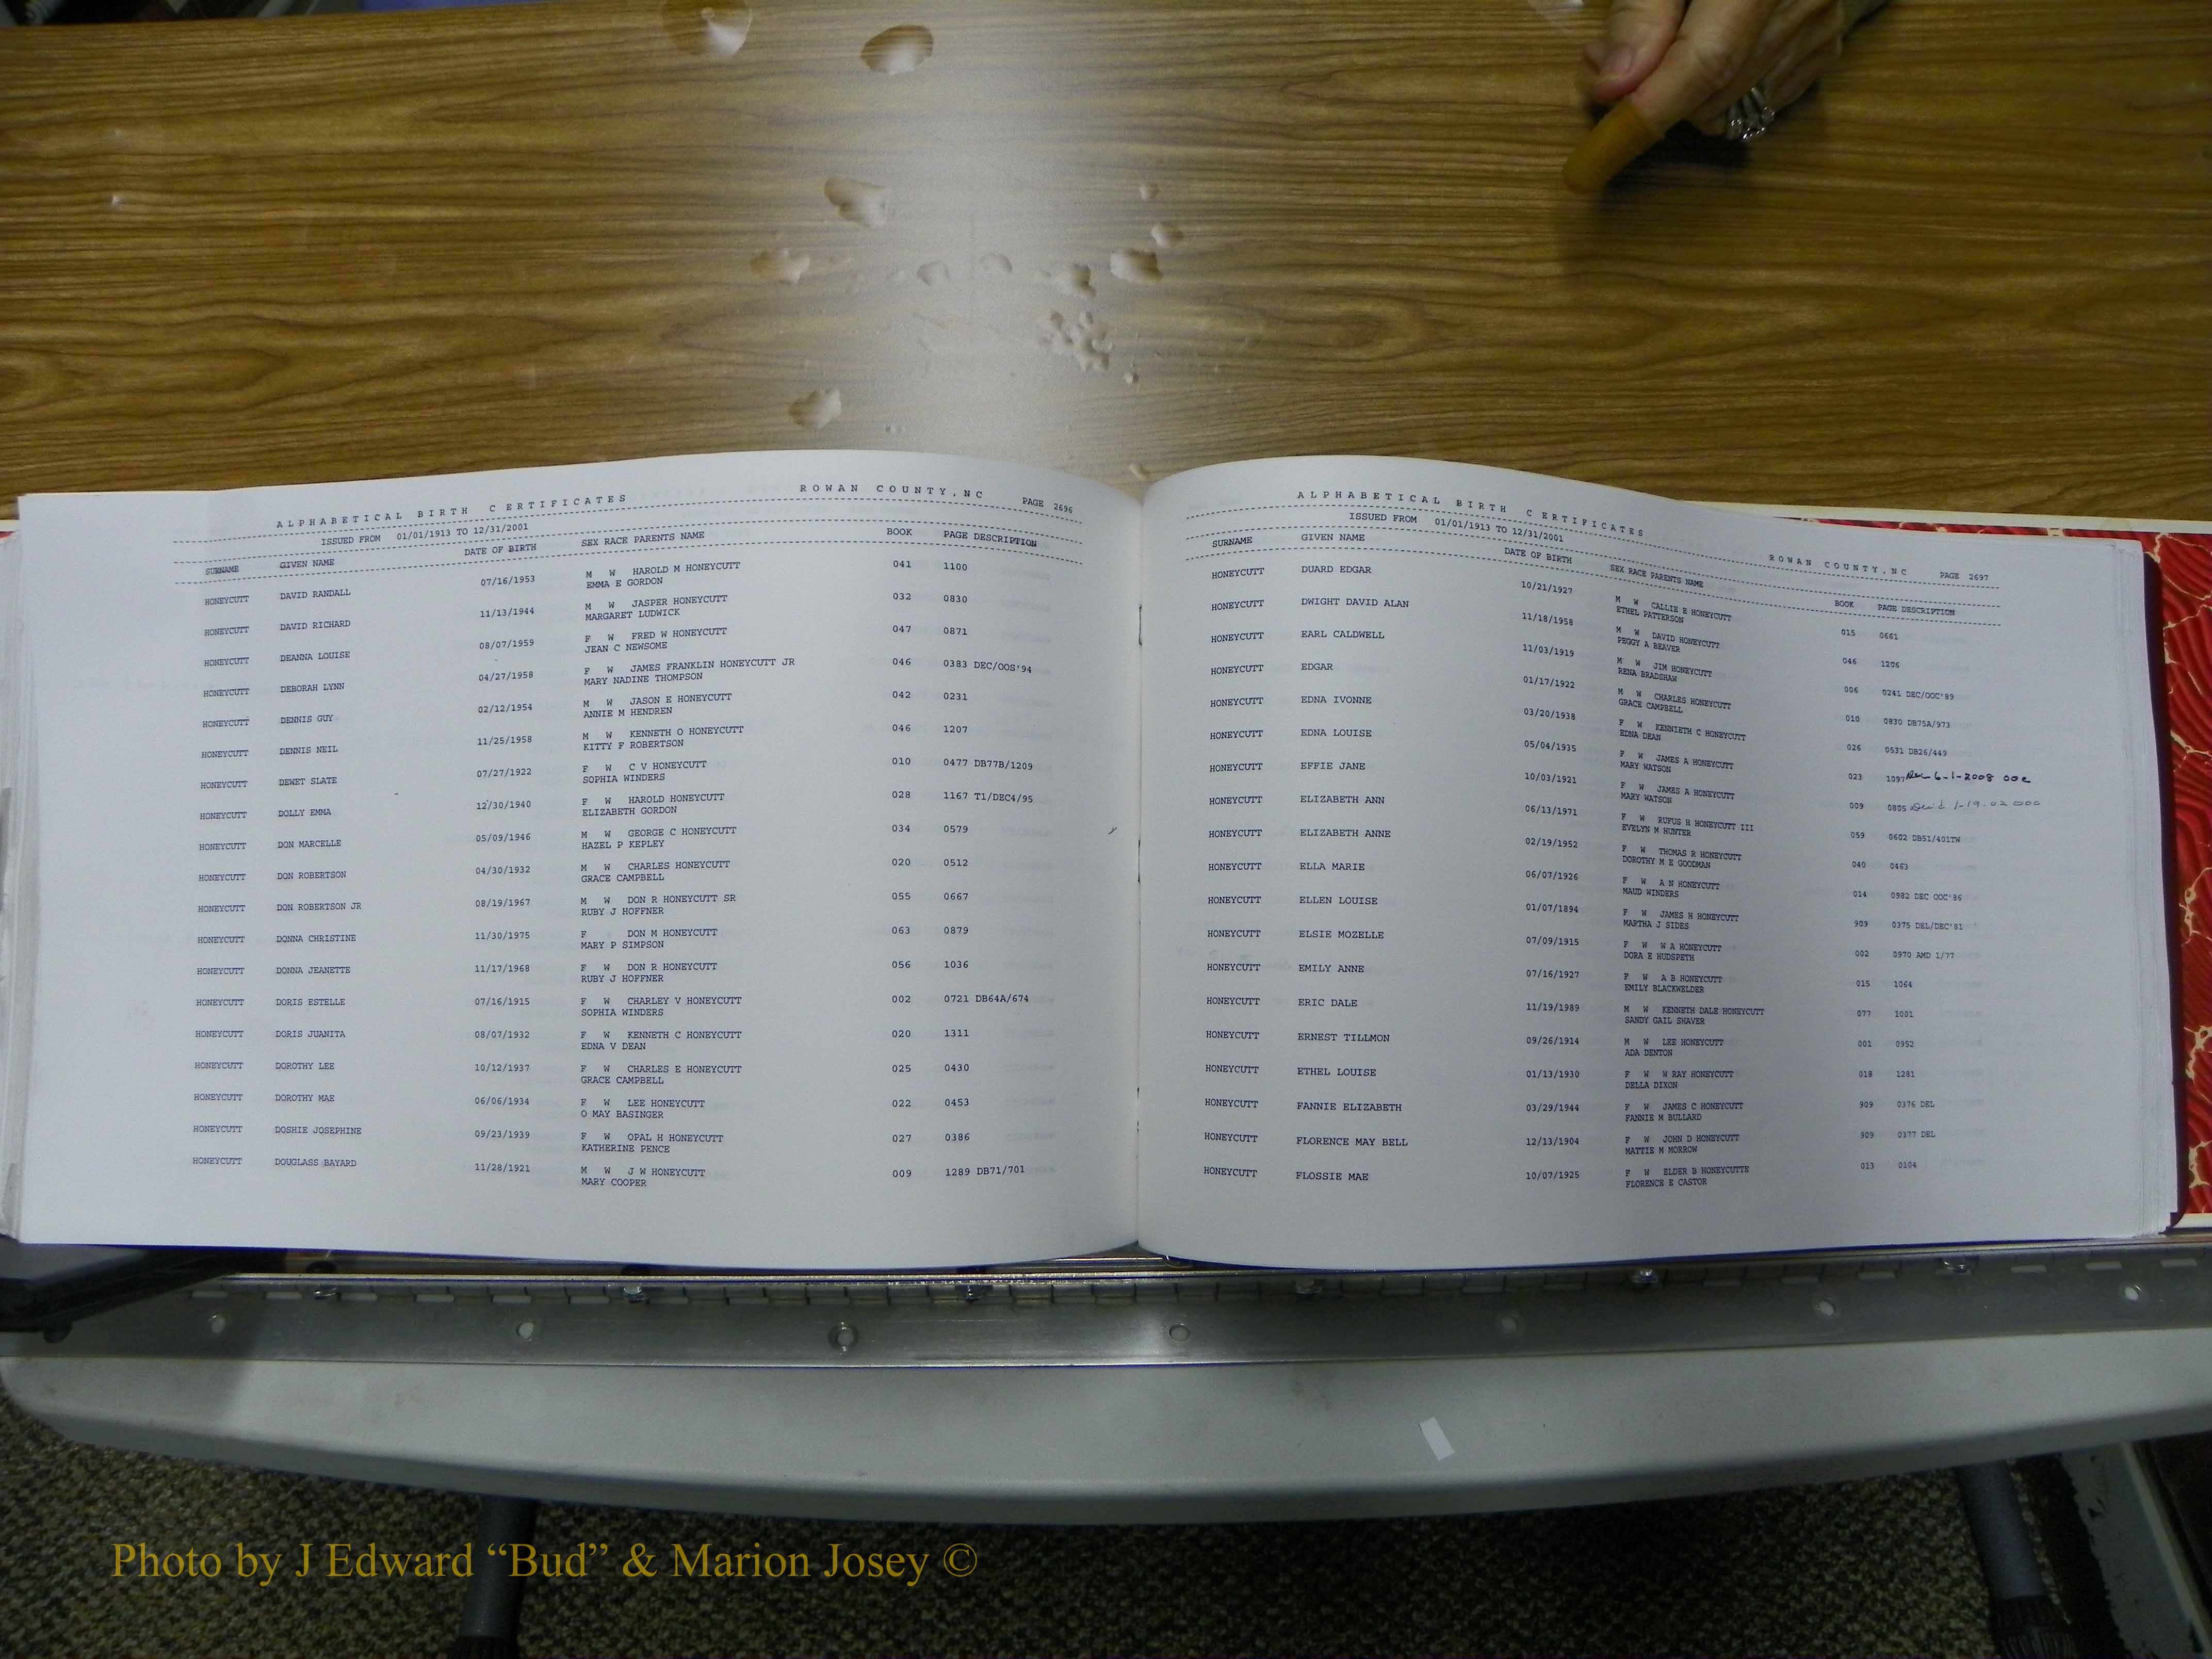 ALPHABETICAL BIRTH CERTIFICATES ROWAN COUNTY, NC PAGE 2696
ISSUED FROM 01/01/1913 TO 12/31/2001
SURNAME GIVEN NAME DATE OF BIRTH SEX RACE PARENTS NAME BOOK PAGE DESCRIPTION
HONEYCUTT DAVID RANDALL 07/16/1953 M W HAROLD M HONEYCUTT 041 1100
EMMA E GORDON
HONEYCUTT DAVID RICHARD 11/13/1944 M W JASPER HONEYCUTT 032 0830
MARGARET LUDWICK
HONEYCUTT DEANNA LOUISE 08/07/1959 F W FRED W HONEYCUTT 047 0871
JEAN C NEWSOME
HONEYCUTT DEBORAH LYNN 04/27/1958 F W JAMES FRANKLIN HONEYCUTT JR 046 0383 DEC/OOS'94
MARY NADINE THOMPSON
HONEYCUTT DENNIS GUY 02/12/1954 M W JASON E HONEYCUTT 042 0231
ANNIE M HENDREN
HONEYCUTT DENNIS NEIL 11/25/1958 M W KENNETH O HONEYCUTT 046 1207
KITTY F ROBERTSON
HONEYCUTT DEWET SLATE 07/27/1922 F W C V HONEYCUTT 010 0477 DB77B/1209
SOPHIA WINDERS
HONEYCUTT DOLLY EMMA 12/30/1940 F W HAROLD HONEYCUTT 028 1167 T1/DEC4/95
ELIZABETH GORDON
HONEYCUTT DON MARCELLE 05/09/1946 M W GEORGE C HONEYCUTT 034 0579
HAZEL P KEPLEY
HONEYCUTT DON ROBERTSON 04/30/1932 M W CHARLES HONEYCUTT 020 0512
GRACE CAMPBELL
HONEYCUTT DON ROBERTSON JR 08/19/1967 M W DON R HONEYCUTT SR 055 0667
RUBY J HOFFNER
HONEYCUTT DONNA CHRISTINE 11/30/1975 F DON M HONEYCUTT 063 0879
MARY P SIMPSON
HONEYCUTT DONNA JEANETTE 11/17/1968 F W DON R HONEYCUTT 056 1036
RUBY J HOFFNER
HONEYCUTT DORIS ESTELLE 07/16/1915 F W CHARLEY V HONEYCUTT 002 0721 DB64A/674
SOPHIA WINDERS
HONEYCUTT DORIS JUANITA 08/07/1932 F W KENNETH C HONEYCUTT 020 1311
EDNA V DEAN
HONEYCUTT DOROTHY LEE 10/12/1937 F W CHARLES E HONEYCUTT 025 0430
GRACE CAMPBELL
HONEYCUTT DOROTHY MAE 06/06/1934 F W LEE HONEYCUTT 022 0453
O MAY BASINGER
HONEYCUTT DOSHIE JOSEPHINE 09/23/1939 F W OPAL H HONEYCUTT 027 0386
KATHERINE PENCE
HONEYCUTT DOUGLASS BAYARD 11/28/1921 M W J W HONEYCUTT 009 1289 DB71/701
MARY COOPER
ALPHABETICAL BIRTH CERTIFICATES ROWAN COUNTY, NC PAGE 2697
ISSUED FROM 01/01/1913 TO 12/31/2001
SURNAME GIVEN NAME DATE OF BIRTH SEX RACE PARENTS NAME BOOK PAGE DESCRIPTION
HONEYCUTT DUARD EDGAR 10/21/1927 M W CALLIE E HONEYCUTT 015 0661
ETHEL PATTERSON
HONEYCUTT DWIGHT DAVID ALAN 11/18/1958 M W DAVID HONEYCUTT 046 1206
PEGGY A BEAVER
HONEYCUTT EARL CALDWELL 11/03/1919 M W JIM HONEYCUTT 006 0241 DEC/OOC'89
RENA BRADSHAW
HONEYCUTT EDGAR 01/17/1922 M W CHARLES HONEYCUTT 010 0830 DB75A/973
GRACE CAMPBELL
HONEYCUTT EDNA IVONNE 03/20/1938 F W KENNIETH C HONEYCUTT 026 0531 DB26/449
EDNA DEAN
HONEYCUTT EDNA LOUISE 05/04/1935 F W JAMES A HONEYCUTT 023 1097 Dec 6-1-2008 OOC
MARY WATSON
HONEYCUTT EFFIE JANE 10/03/1921 F W JAMES A HONEYCUTT 009 0805 Dec'd 1-19-02 OOC
MARY WATSON
HONEYCUTT ELIZABETH ANN 06/13/1971 F W RUFUS H HONEYCUTT III 059 0602 DB51/401TW
EVELYN M HUNTER
HONEYCUTT ELIZABETH ANNE 02/19/1952 F W THOMAS R HONEYCUTT 040 0463
DOROTHY M E GOODMAN
HONEYCUTT ELLA MARIE 06/07/1926 F W A N HONEYCUTT 014 0982 DEC OOC'86
MAUD WINDERS
HONEYCUTT ELLEN LOUISE 01/07/1894 F W JAMES H HONEYCUTT 909 0375 DEL/DEC'81
MARTHA J SIDES
HONEYCUTT ELSIE MOZELLE 07/09/1915 F W W A HONEYCUTT 002 0970 AMD 1/77
DORA E HUDSPETH
HONEYCUTT EMILY ANNE 07/16/1927 F W A B HONEYCUTT 015 1064
EMILY BLACKWELDER
HONEYCUTT ERIC DALE 11/19/1989 M W KENNETH DALE HONEYCUTT 077 1001
SANDY GAIL SHAVER
HONEYCUTT ERNEST TILLMON 09/26/1914 M W LEE HONEYCUTT 001 0952
ADA DENTON
HONEYCUTT ETHEL LOUISE 01/13/1930 F W W RAY HONEYCUTT 018 1281
DELLA DIXON
HONEYCUTT FANNIE ELIZABETH 03/29/1944 F W JAMES C HONEYCUTT 909 0376 DEL
FANNIE M BULLARD
HONEYCUTT FLORENCE MAY BELL 12/13/1904 F W JOHN D HONEYCUTT 909 0377 DEL
MATTIE M MORROW
HONEYCUTT FLOSSIE MAE 10/07/1925 F W ELDER B HONEYCUTTE 013 0104
FLORENCE E CASTOR
Photo by J Edward “Bud” & Marion Josey ©